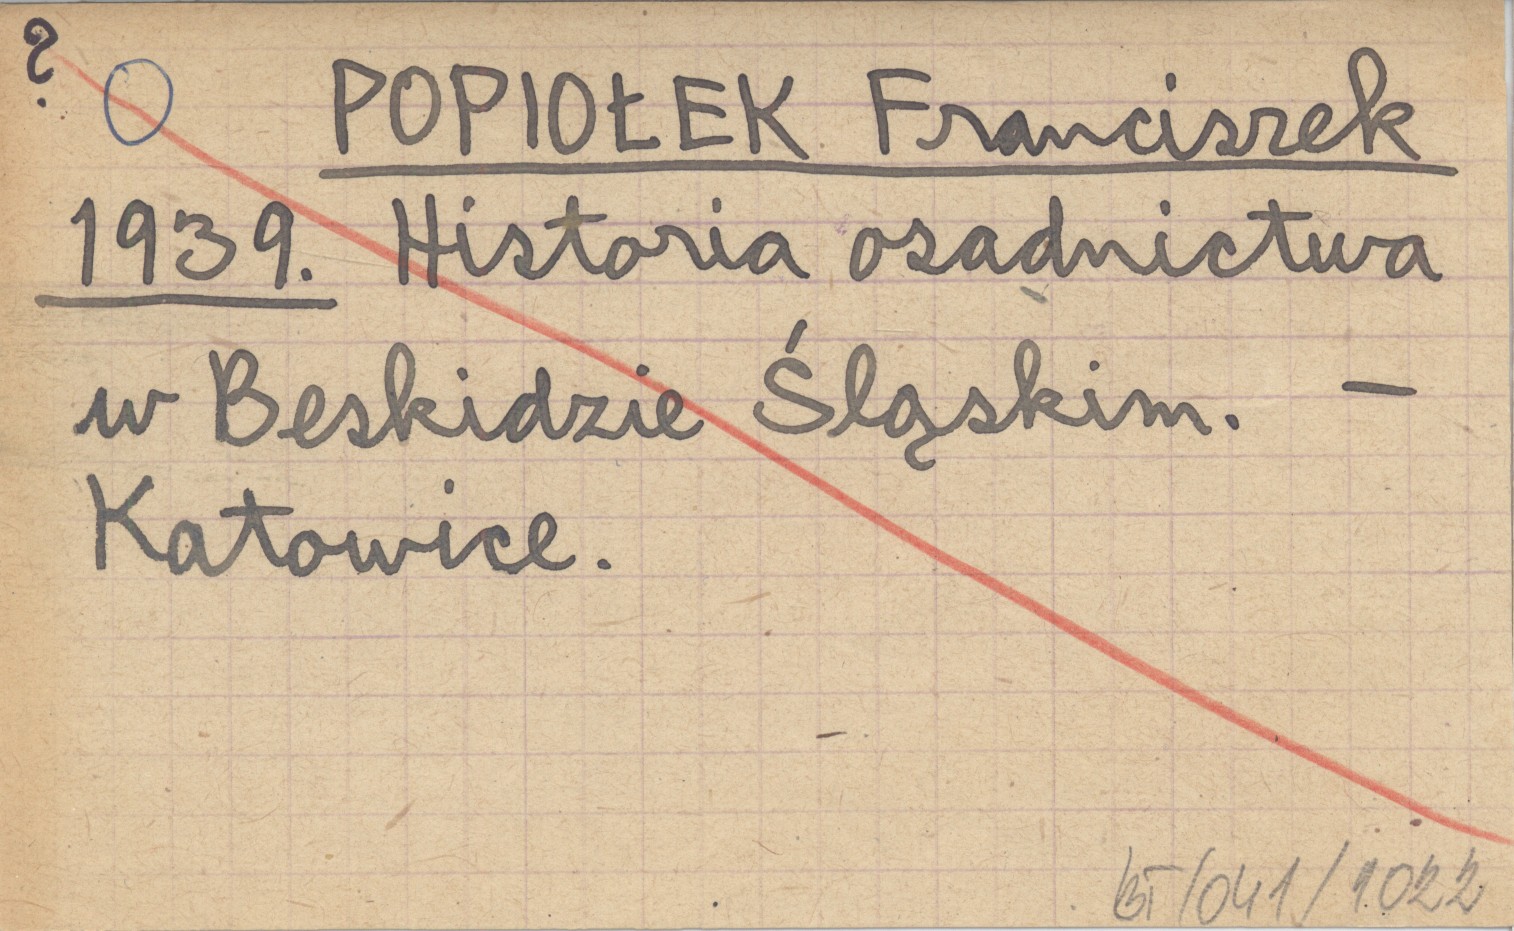 ?
POPIOŁEK Franciszek
1939. Historia osadnictwa
w Beskidzie Śląskim. —
Katowice.
BT/041/1022